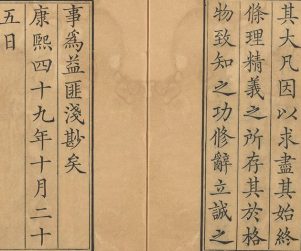 其大凡因以求盡其始終
條理精義之所存其於格
物致知之功修辭立誠之
事為益匪淺尠矣
康熙四十九年十月二十
五日